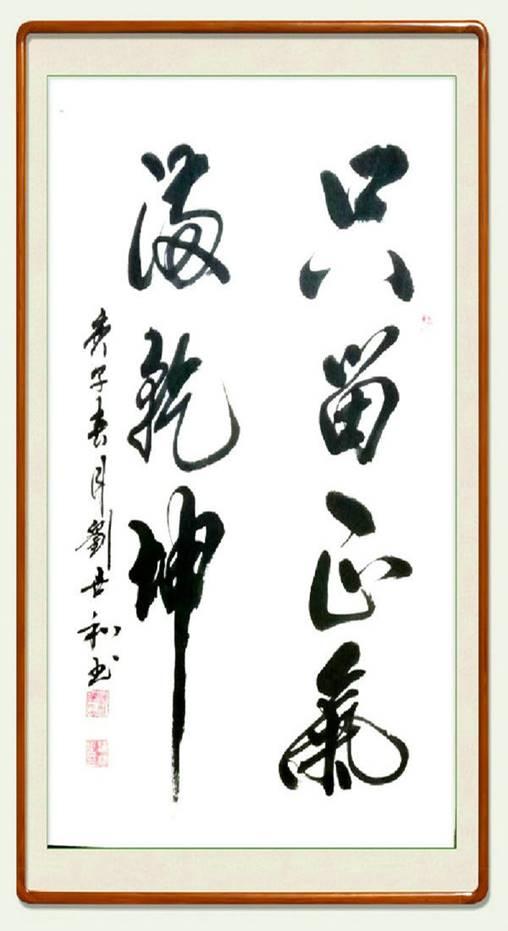 只留正氣
滿乾坤
庚子春月劉世和书